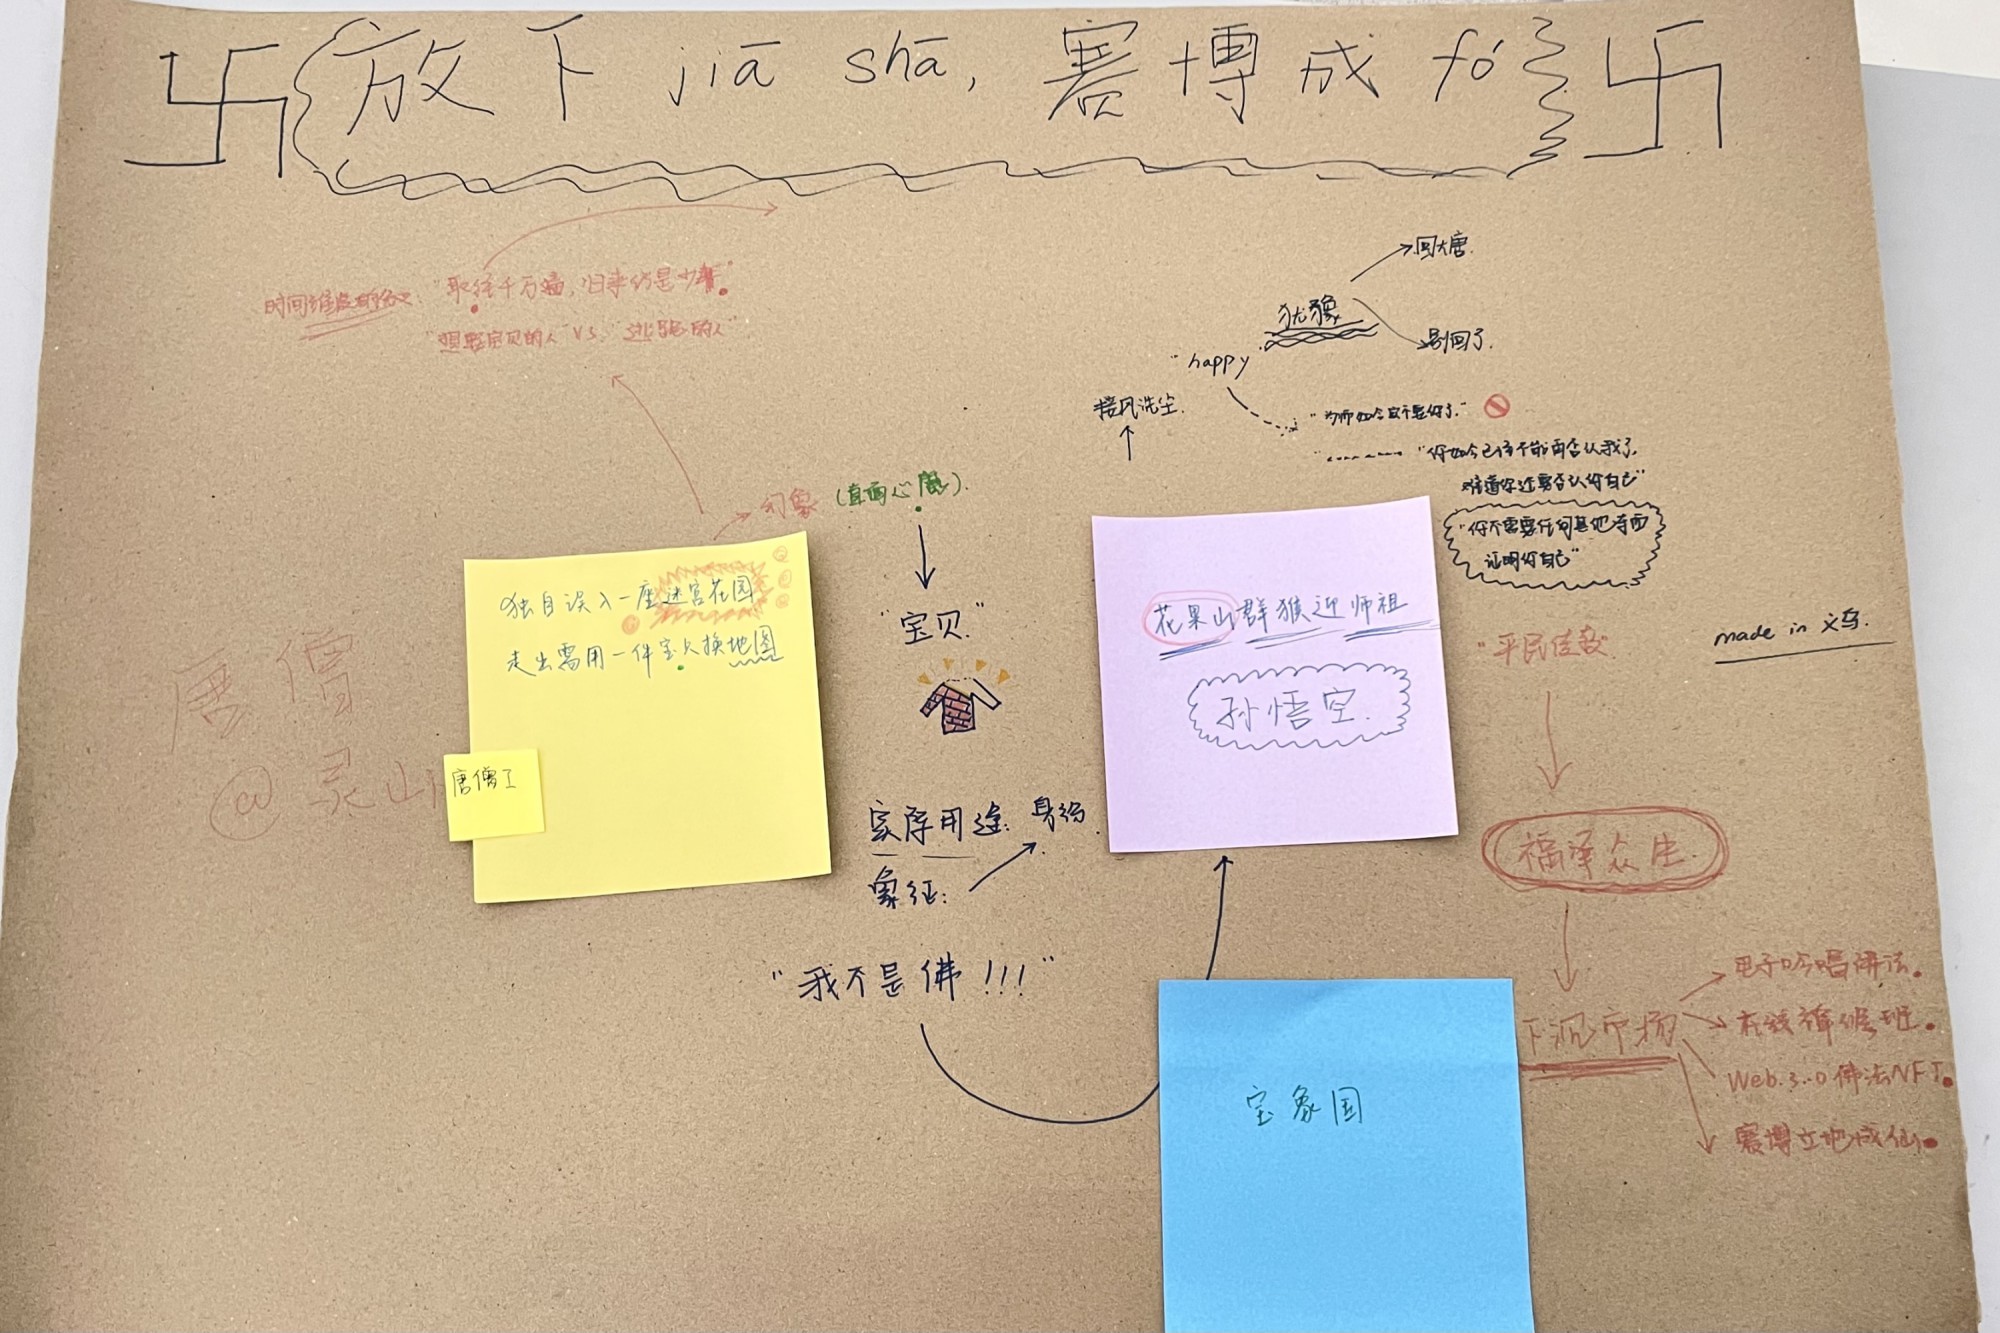 卐 放下 jiā shā, 赛博成 fó 卐
时间维度的
"取经千万遍,归来仍是少年"
"想要宝贝的人" VS. "迷路的人"
幻象
(直面心魔).
回大唐.
犹豫
别回了.
"happy
接风洗尘.
"为师如今 不要你了."
"你如今已经不能再否认我了,
难道你还要否认你自己"
"你不需要任何其他东西
证明你自己"
独自误入一座迷宫花园
走出需用一件宝贝换地图
唐僧
@灵山
唐僧工
"宝贝"
花果山群猴迎师祖
孙悟空.
"平民佳敌"
made in 义乌.
实际用途: 身份.
象征:
福泽众生.
"我不是佛!!!"
下沉市场
电子吟唱佛法.
在线禅修班.
Web.3.0 佛法NFT.
赛博立地成仙.
宝象国